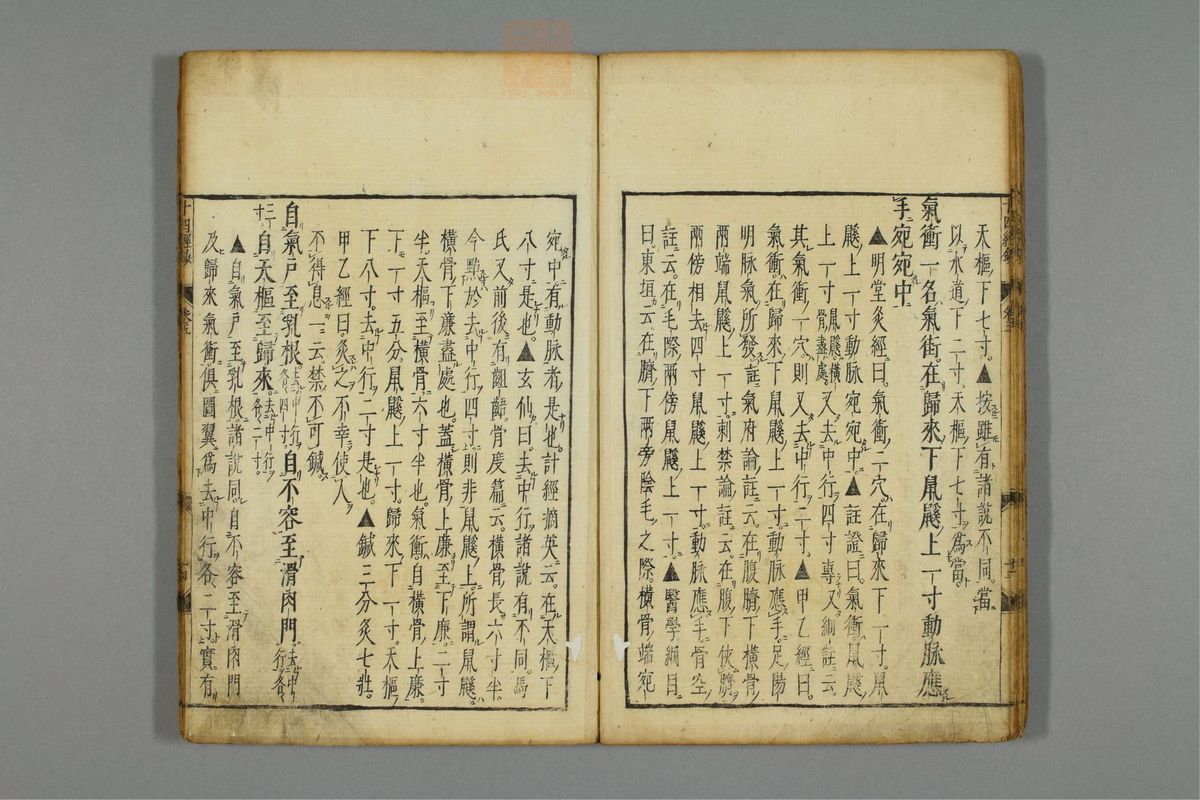 天樞下七寸▲按雖有諸説不同當
以水道下二寸天樞下七寸爲當
氣衝一名氣街在歸來下鼠鼷上一寸動脉應
手宛宛中
▲明堂灸經曰氣衝二穴在歸來下一寸鼠
鼷上一寸動脉宛宛中▲註證曰氣衝鼠鼷
上一寸鼠鼷橫骨盡處又去中行四寸專又綱註云
其氣衝一穴則又去中行二寸▲甲乙經曰
氣衝在歸來下鼠鼷上一寸動脉應手足陽
明脉氣所發註氣府論註云在腹臍下橫骨
兩端鼠鼷上一寸刺禁論註云在腹下俠臍
兩傍相去四寸鼠鼷上一寸動脉應手骨空
註云在毛際兩傍鼠鼷上一寸▲醫學綱目
曰東垣云在臍下兩旁陰毛之際橫骨端宛
宛中有動脉者是也計經摘英云在天樞下
八寸是也▲玄仙曰去中行諸説有不同馬
氏又前後有齟齬骨度篇云橫骨長六寸半
今點於去中行四寸則非鼠鼷上所謂鼠鼷
橫骨下廉盡處也蓋橫骨上廉至下廉一寸
半天樞至橫骨六寸半也氣衝自橫骨上廉
下一寸五分鼠鼷上一寸歸來下一寸天樞
下八寸去中行二寸是也▲鍼三分灸七壯
甲乙經曰灸之不幸使人
不得息一云禁不可鍼
自氣戸至乳根去中行各四寸自不容至滑肉門去中行各
二寸自天樞至歸來去中行各二寸
▲自氣戸至乳根諸説同自不容至滑肉門
及歸來氣衝俱圖翼爲去中行各二寸實有
十四經
卷五